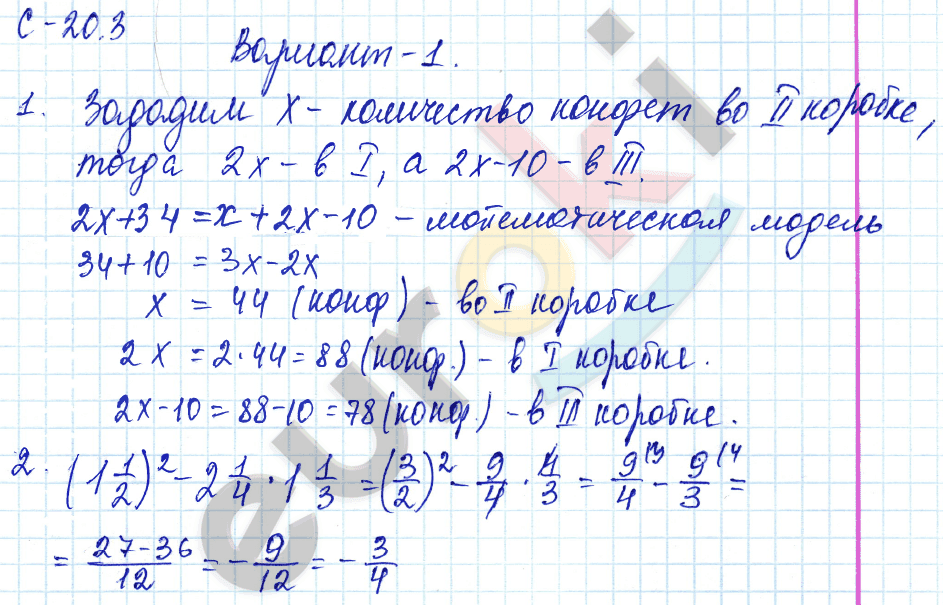 С-20.3
Вариант-1.
1. Зададим х - количество конфет во II коробке,
тогда 2х - в I, а 2х-10 - в III.
2х+34 = х+2х-10 - математическая модель
34+10 = 3х-2х
х = 44 (конф) - во II коробке
2х = 2·44 = 88 (конф.) - в I коробке.
2х-10 = 88-10 = 78 (конф.) - в III коробке.
2. (1 1/2)² - 2 1/4 · 1 1/3 = (3/2)² - 9/4 · 4/3 = 9/4 (3 - 9/3 (4 =
= 27-36/12 = - 9/12 = - 3/4
euroki